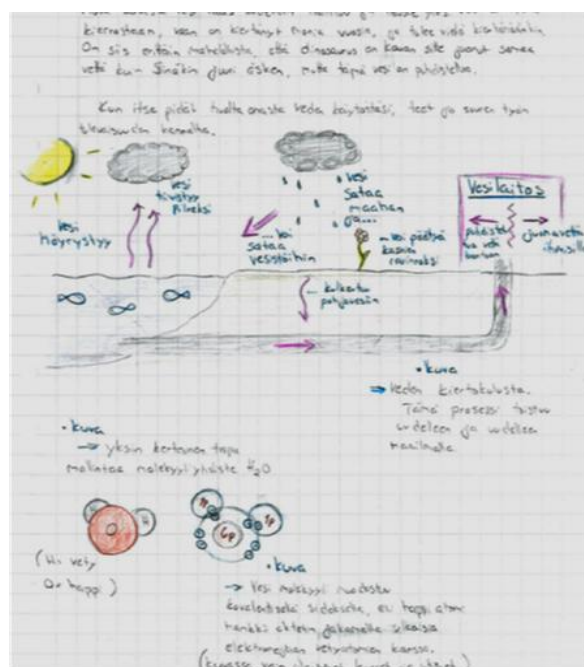 kiertoteen, vaan on kiertänyt monia vuosia, ja tulee vielä kiertämäänkin.
On siis erittäin mahdollista, että dinosaurus on kauan sitten juonut samaa
vettä kuin Sinäkin juuri äsken, mutta tämä vesi on puhdistettua.
Kun itse pidät huolta omasta veden käytöstäsi, teet jo suuren työn
tulevaisuuden kannalta.
Vesi
tiivistyy
pilveksi
Vesi
höyrystyy
Vesi
Sataa
maahan
ja...
... tai
sataa
vesistöihin
...tai päätyä
kasvien
ravinnoksi
... kulkeutuu
pohjavesiin
Vesilaitos
puhdistaa
juomavettä
ihmisille
• kuva
→ Veden kiertokulusta.
Tämä prosessi toistuu
uudelleen ja uudelleen
maailmalla.
• kuva
→ yksin kertainen tapa
mallintaa molekyyliyhdiste H₂O
(H: vety
O: happi)
H
8p
1p
• kuva
→ Vesi molekyyli muodostuu
kovalenttisella sidoksella, eli happi atomi
hankkii oktetin, jakamalla ulkoisia
elektronejaan vetyatomien kanssa.
(kuvassa vain